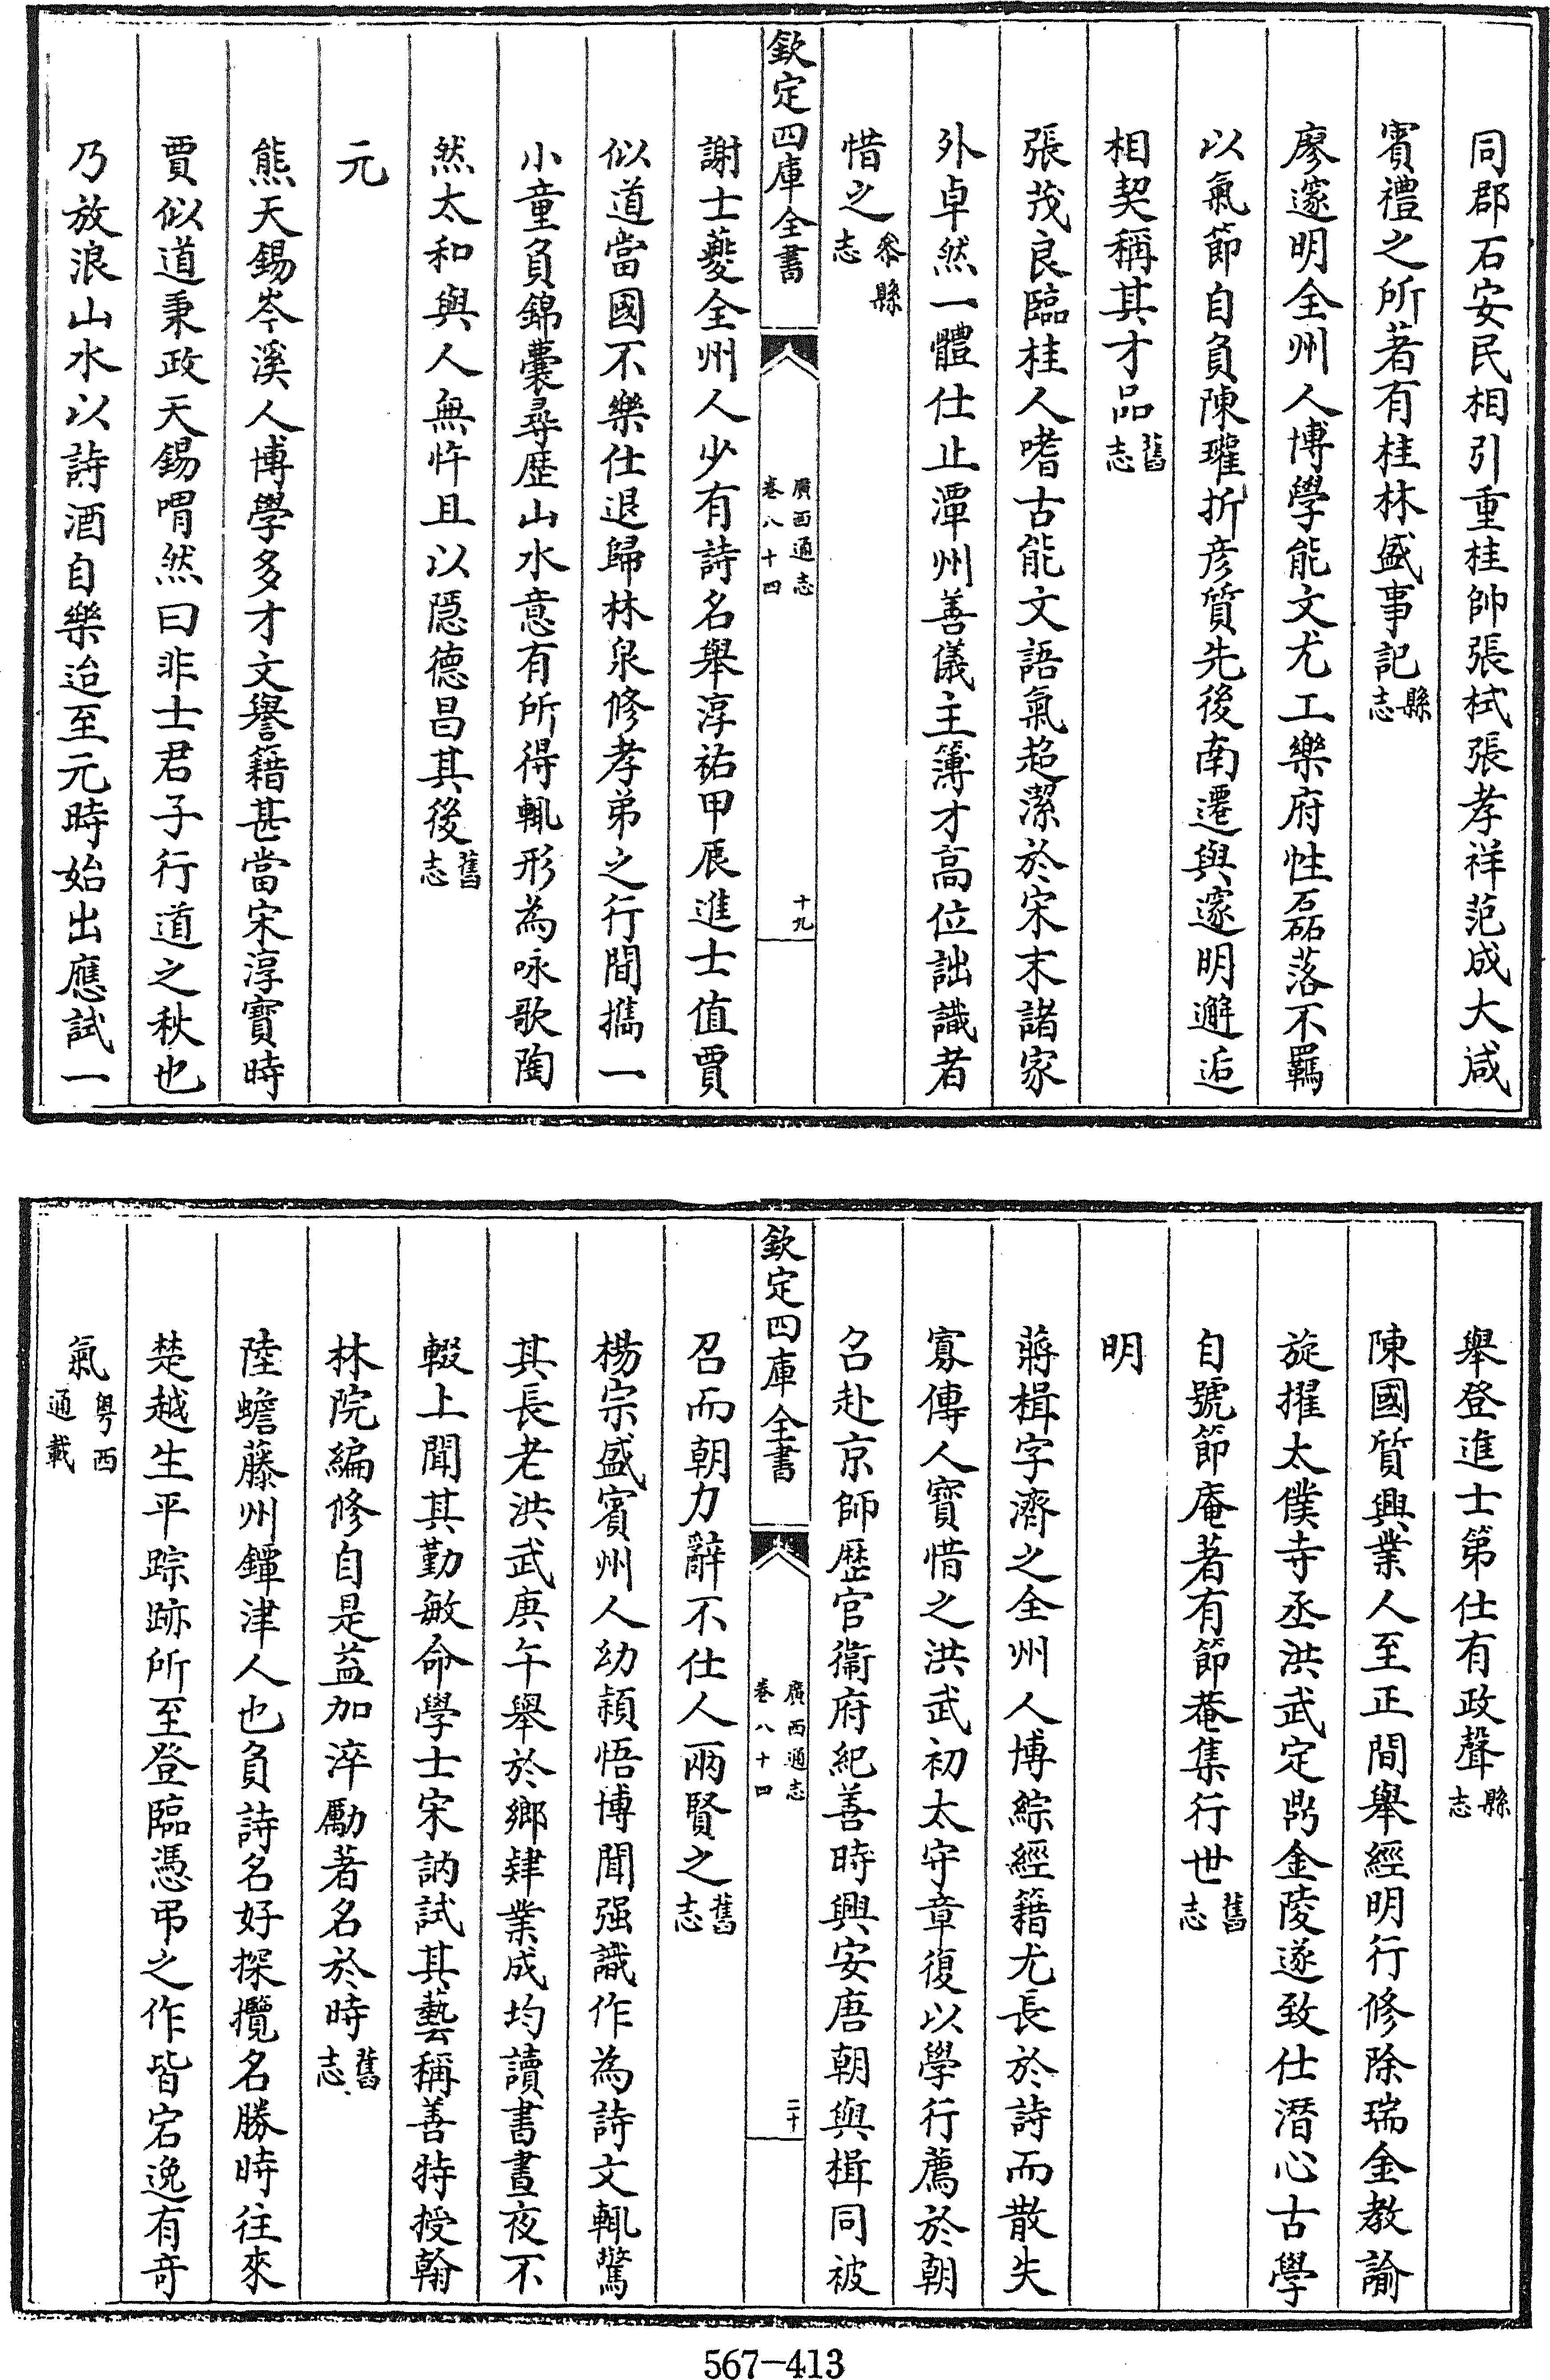 同郡石安民相引重桂帥張栻張孝祥范成大咸
賓禮之所著有桂林盛事記縣志
廖邃明全州人博學能文尤工樂府性磊落不羈
以氣節自負陳瓘折彥質先後南遷與邃明邂逅
相契稱其才品舊志
張茂良臨桂人嗜古能文語氣超潔於宋末諸家
外卓然一體仕止潭州善儀主簿才高位詘識者
惜之叅縣志
欽定四庫全書 廣西通志卷八十四 十九
謝士夔全州人少有詩名舉淳祐甲辰進士值賈
似道當國不樂仕退歸林泉修孝弟之行間攜一
小童負錦囊尋歷山水意有所得輒形為咏歌陶
然太和與人無忤且以隱德昌其後舊志
元
熊天錫岑溪人博學多才文譽籍甚當宋淳寶時
賈似道秉政天錫喟然曰非士君子行道之秋也
乃放浪山水以詩酒自樂迨至元時始出應試一
舉登進士第仕有政聲縣志
陳國質興業人至正間舉經明行修除瑞金教諭
旋擢太僕寺丞洪武定鼎金陵遂致仕潛心古學
自號節庵著有節菴集行世舊志
明
蔣楫字濟之全州人博綜經籍尤長於詩而散失
寡傳人寶惜之洪武初太守章復以學行薦於朝
召赴京師歷官衛府紀善時興安唐朝與楫同被
欽定四庫全書 廣西通志卷八十四 二十
召而朝力辭不仕人兩賢之舊志
楊宗盛賓州人幼穎悟博聞强識作為詩文輒驚
其長老洪武庚午舉於鄉肄業成均讀書晝夜不
輟上聞其勤敏命學士宋訥試其藝稱善特授翰
林院編修自是益加淬勵著名於時舊志
陸蟾藤州鐔津人也負詩名好探攬名勝時往來
楚越生平踪跡所至登臨憑弔之作皆宕逸有奇
氣粵西通載
567-413